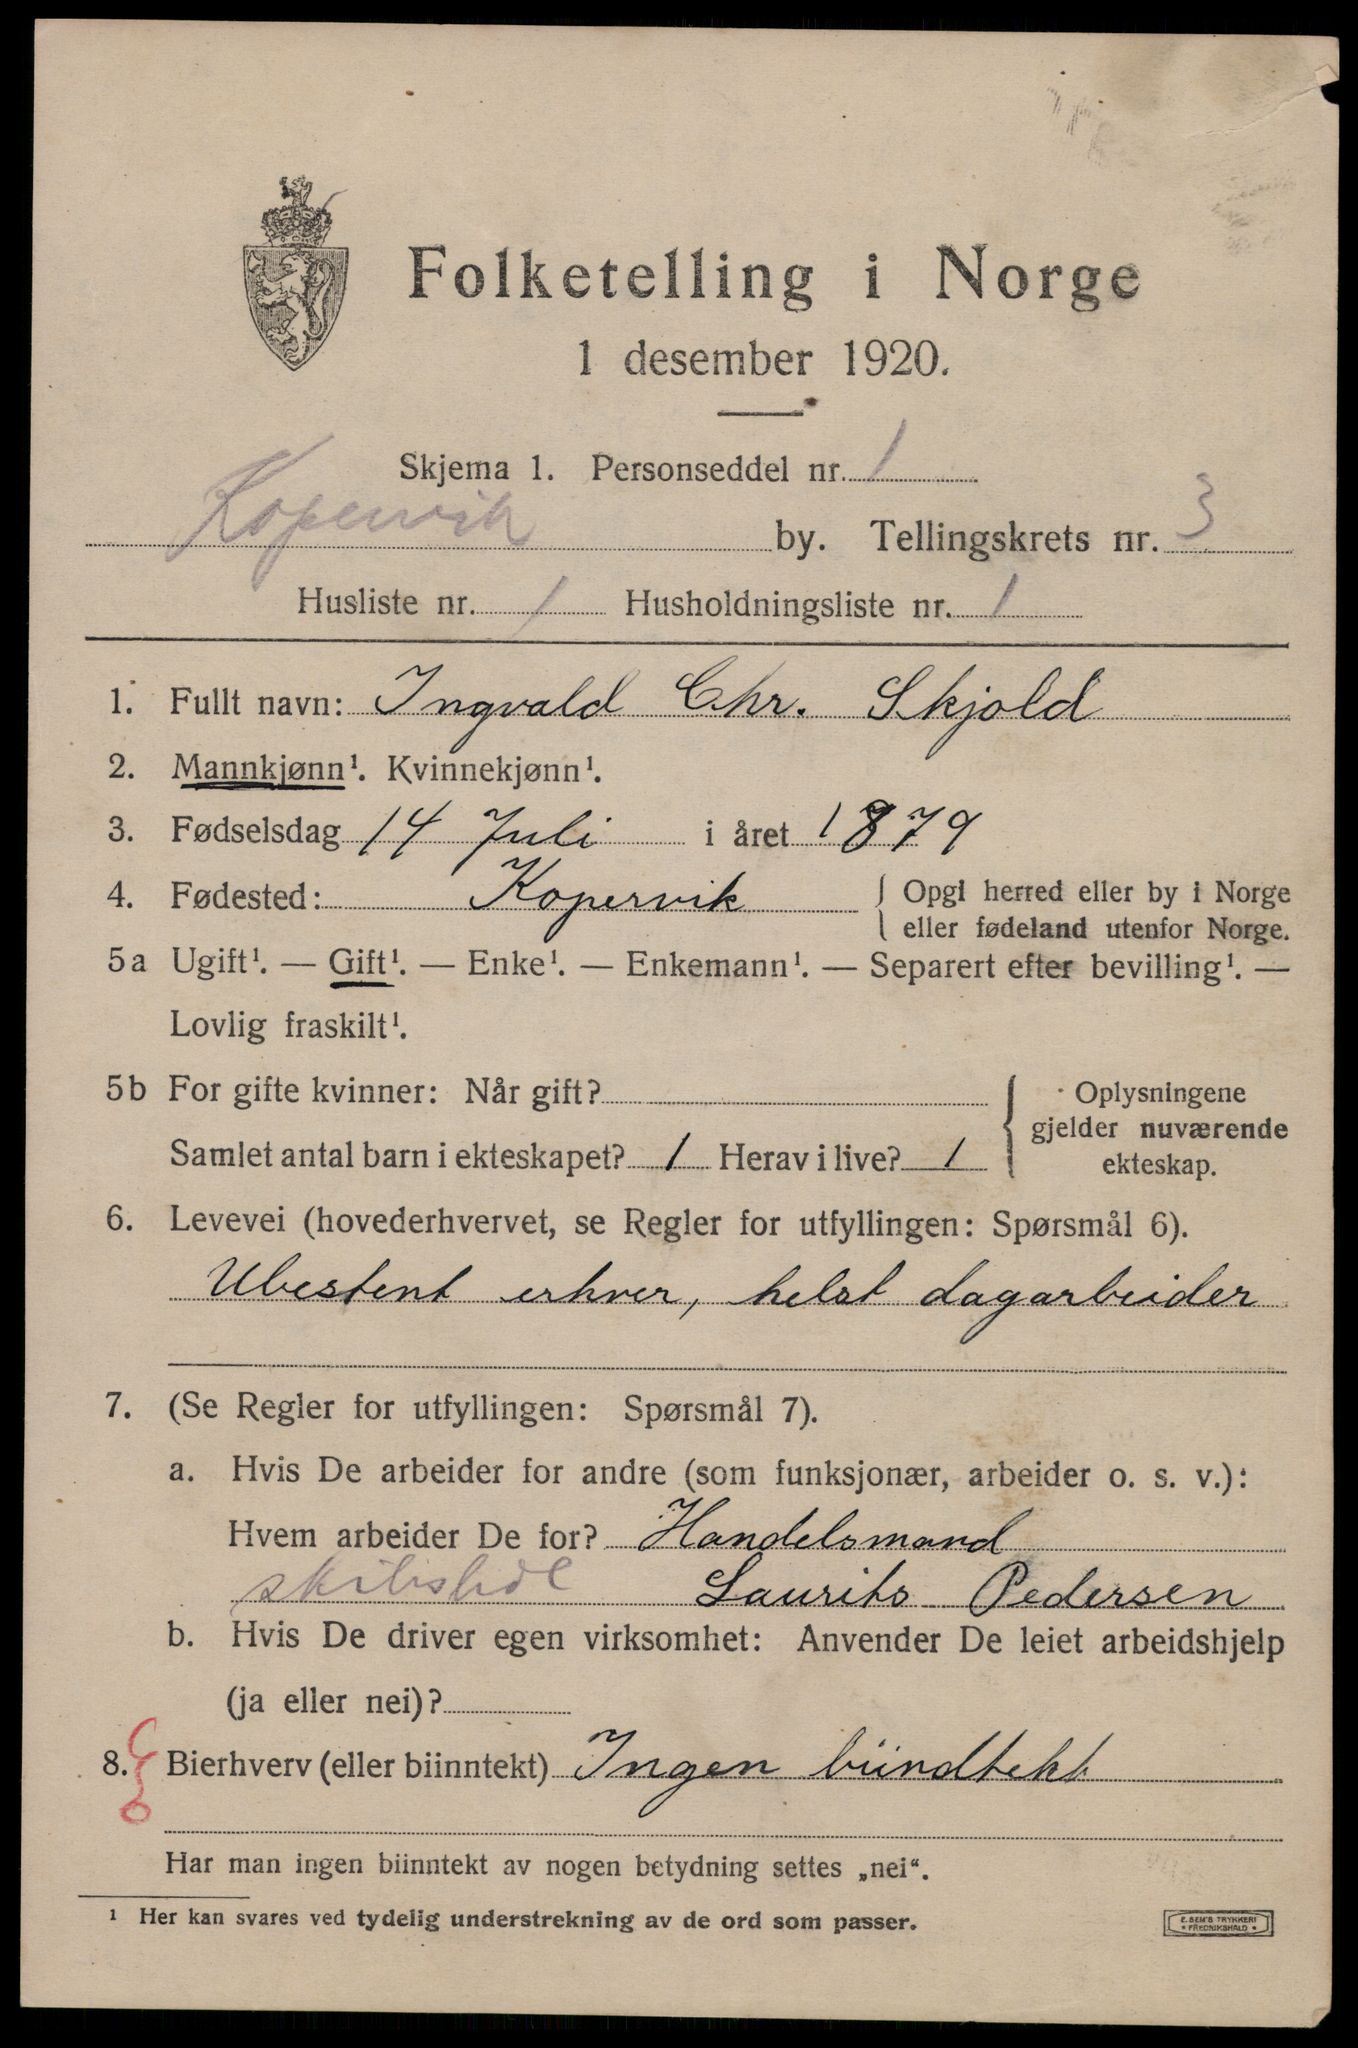 Folketelling i Norge
1 desember 1920.
Skjema 1. Personseddel nr. 1
Kopervik by. Tellingskrets nr. 3
Husliste nr. 1 Husholdningsliste nr. 1
1. Fullt navn: Ingvald Chr. Skjold
2. Mannkjønn¹. Kvinnekjønn¹.
3. Fødselsdag 14 Juli i året 1879
4. Fødested: Kopervik { Opgi herred eller by i Norge
eller fødeland utenfor Norge.
5a Ugift¹. — Gift¹. — Enke¹. — Enkemann¹. — Separert efter bevilling¹. —
Lovlig fraskilt¹.
5b For gifte kvinner: Når gift? { Oplysningene
gjelder nuværende
Samlet antal barn i ekteskapet? 1 Herav i live? 1
ekteskap.
6. Levevei (hovederhvervet, se Regler for utfyllingen: Spørsmål 6).
Ubestent erhver, helst dagarbeider
7. (Se Regler for utfyllingen: Spørsmål 7).
a. Hvis De arbeider for andre (som funksjonær, arbeider o. s. v.):
Hvem arbeider De for? Handelsmand
Laurits Pedersen
b. Hvis De driver egen virksomhet: Anvender De leiet arbeidshjelp
(ja eller nei)?
8. Bierhverv (eller biinntekt) Ingen biindtekt
Har man ingen biinntekt av nogen betydning settes „nei“.
¹ Her kan svares ved tydelig understrekning av de ord som passer.
E. SEM'S TRYKKERI
* FREDRIKSHALD *